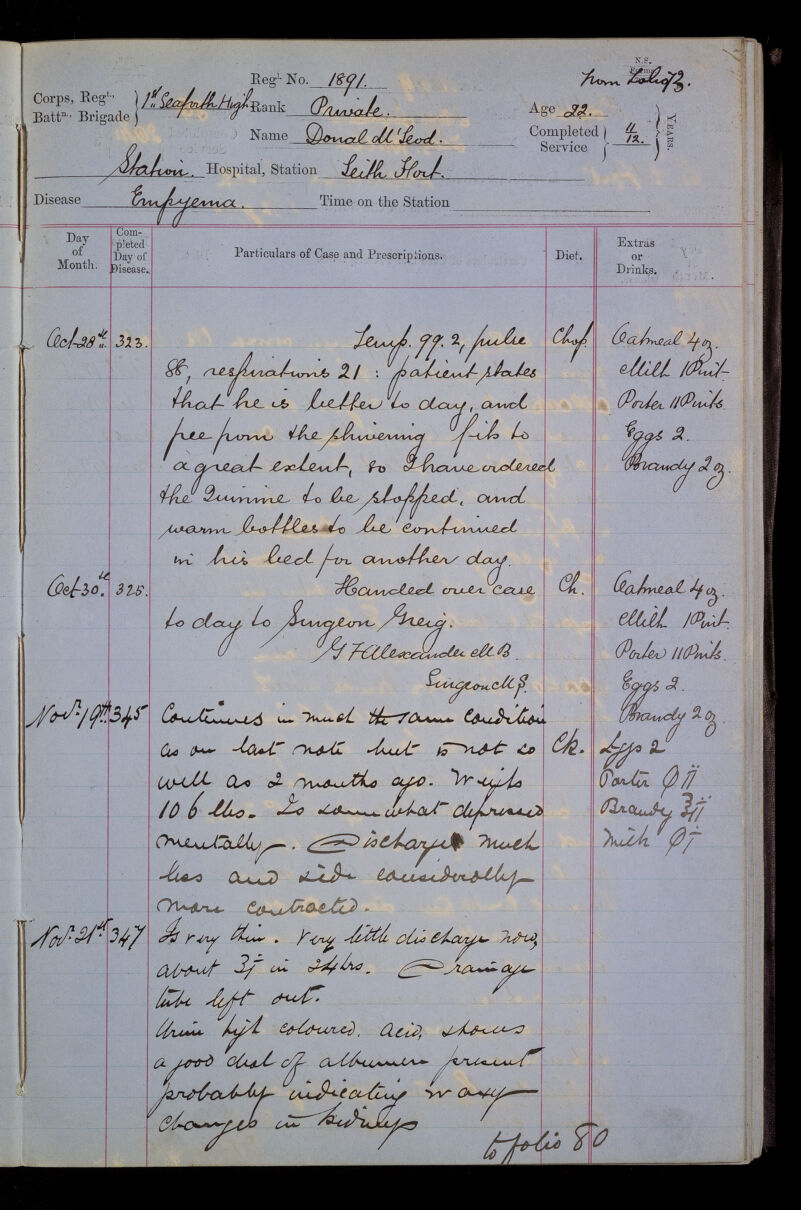 N.S.
from Folio 72.
Regl. No. 1891.
Corps, Regt., Battn., Brigade } 1st Seaforth High. Rank Private. Age 22.
Name Donal M'Leod. Completed Service } 11/12. } YEARS.
Station Hospital, Station Leith Fort.
Disease Empyema. Time on the Station
Day of Month. Completed Day of Disease. Particulars of Case and Prescriptions. Diet. Extras or Drinks.
Oct 28th. 323. Temp. 99.2, pulse Chop. Oatmeal 4 oz.
88, respirations 21 : patient states Milk 1 Pint
that he is better to day, and Porter II Pints
free from the shivering fits to Eggs 2.
a great extent, so I have ordered Brandy 2 oz.
the Quinine to be stopped, and
warm bottles to be continued
in his bed for another day.
Oct 30th. 325. Handed over case Ch. Oatmeal 4 oz.
to day to Surgeon Greig. Milk 1 Pint.
G F Alexander M B Porter II Pints.
Surgeon M.S. Eggs 2.
Novr. 19th. 345 Continues in much the same condition Brandy 2 oz
as on last note but is not so Ck. Eggs 2
well as 2 months ago. Weighs Porter O ii
106 lbs. Is somewhat depressed Brandy ℥ii
mentally. Discharge much Milk O i
less and side considerably
more contracted.
Novr. 21st 347 Is very thin. Very little discharge now,
about ℥i in 24 hrs. Drainage
tube left out.
Urine high coloured, acid, shows
a good deal of albumen present
probably indicating waxy
changes in kidneys
to folio 80